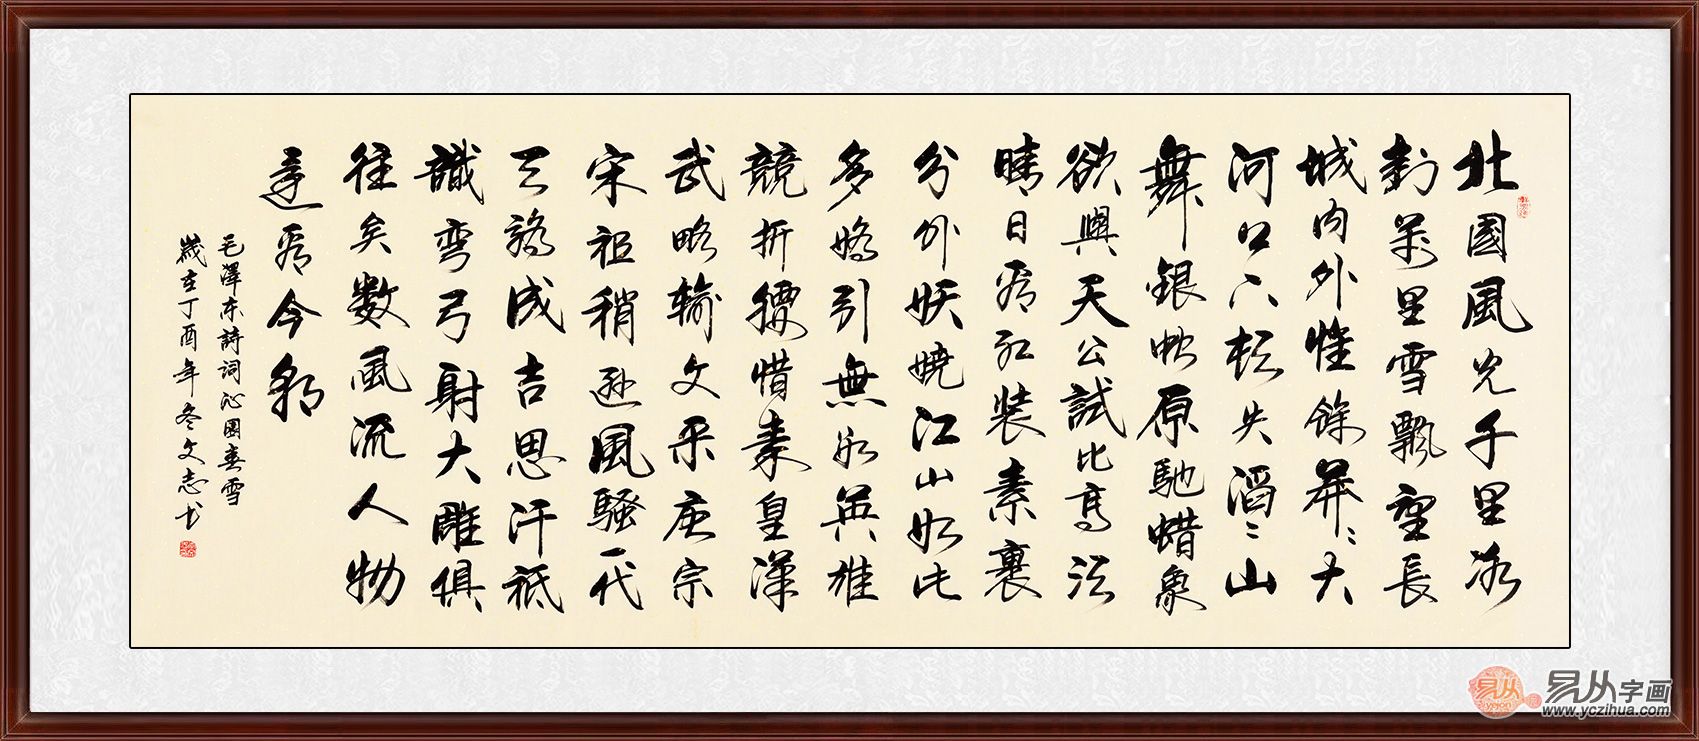 北國風光千里冰
封萬里雪飄望長
城内外惟餘莽〻大
河上下頓失滔〻山
舞銀蛇原馳蜡象
欲與天公試比高須
晴日看紅裝素裹
分外妖嬈江山如此
多嬌引無數英雄
競折腰惜秦皇漢
武略輸文采唐宗
宋祖稍遜風騷一代
天驕成吉思汗祇
識弯弓射大雕俱
往矣數風流人物
還看今朝
毛澤東詩詞沁園春雪
歲在丁酉年冬文志书
易从
易从字画
www.yczihua.com